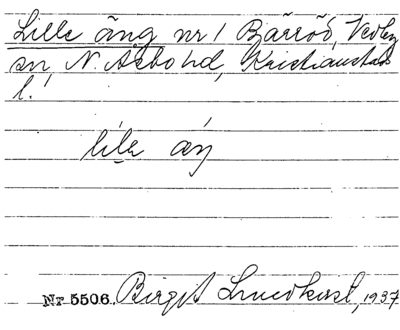 Lille äng nr 1 Bäröd, Vedby
sn, N. Åsbo hd, Kristianstads
l.
lila áŋ
Nr 5506. Birgit Lundkvist, 1937